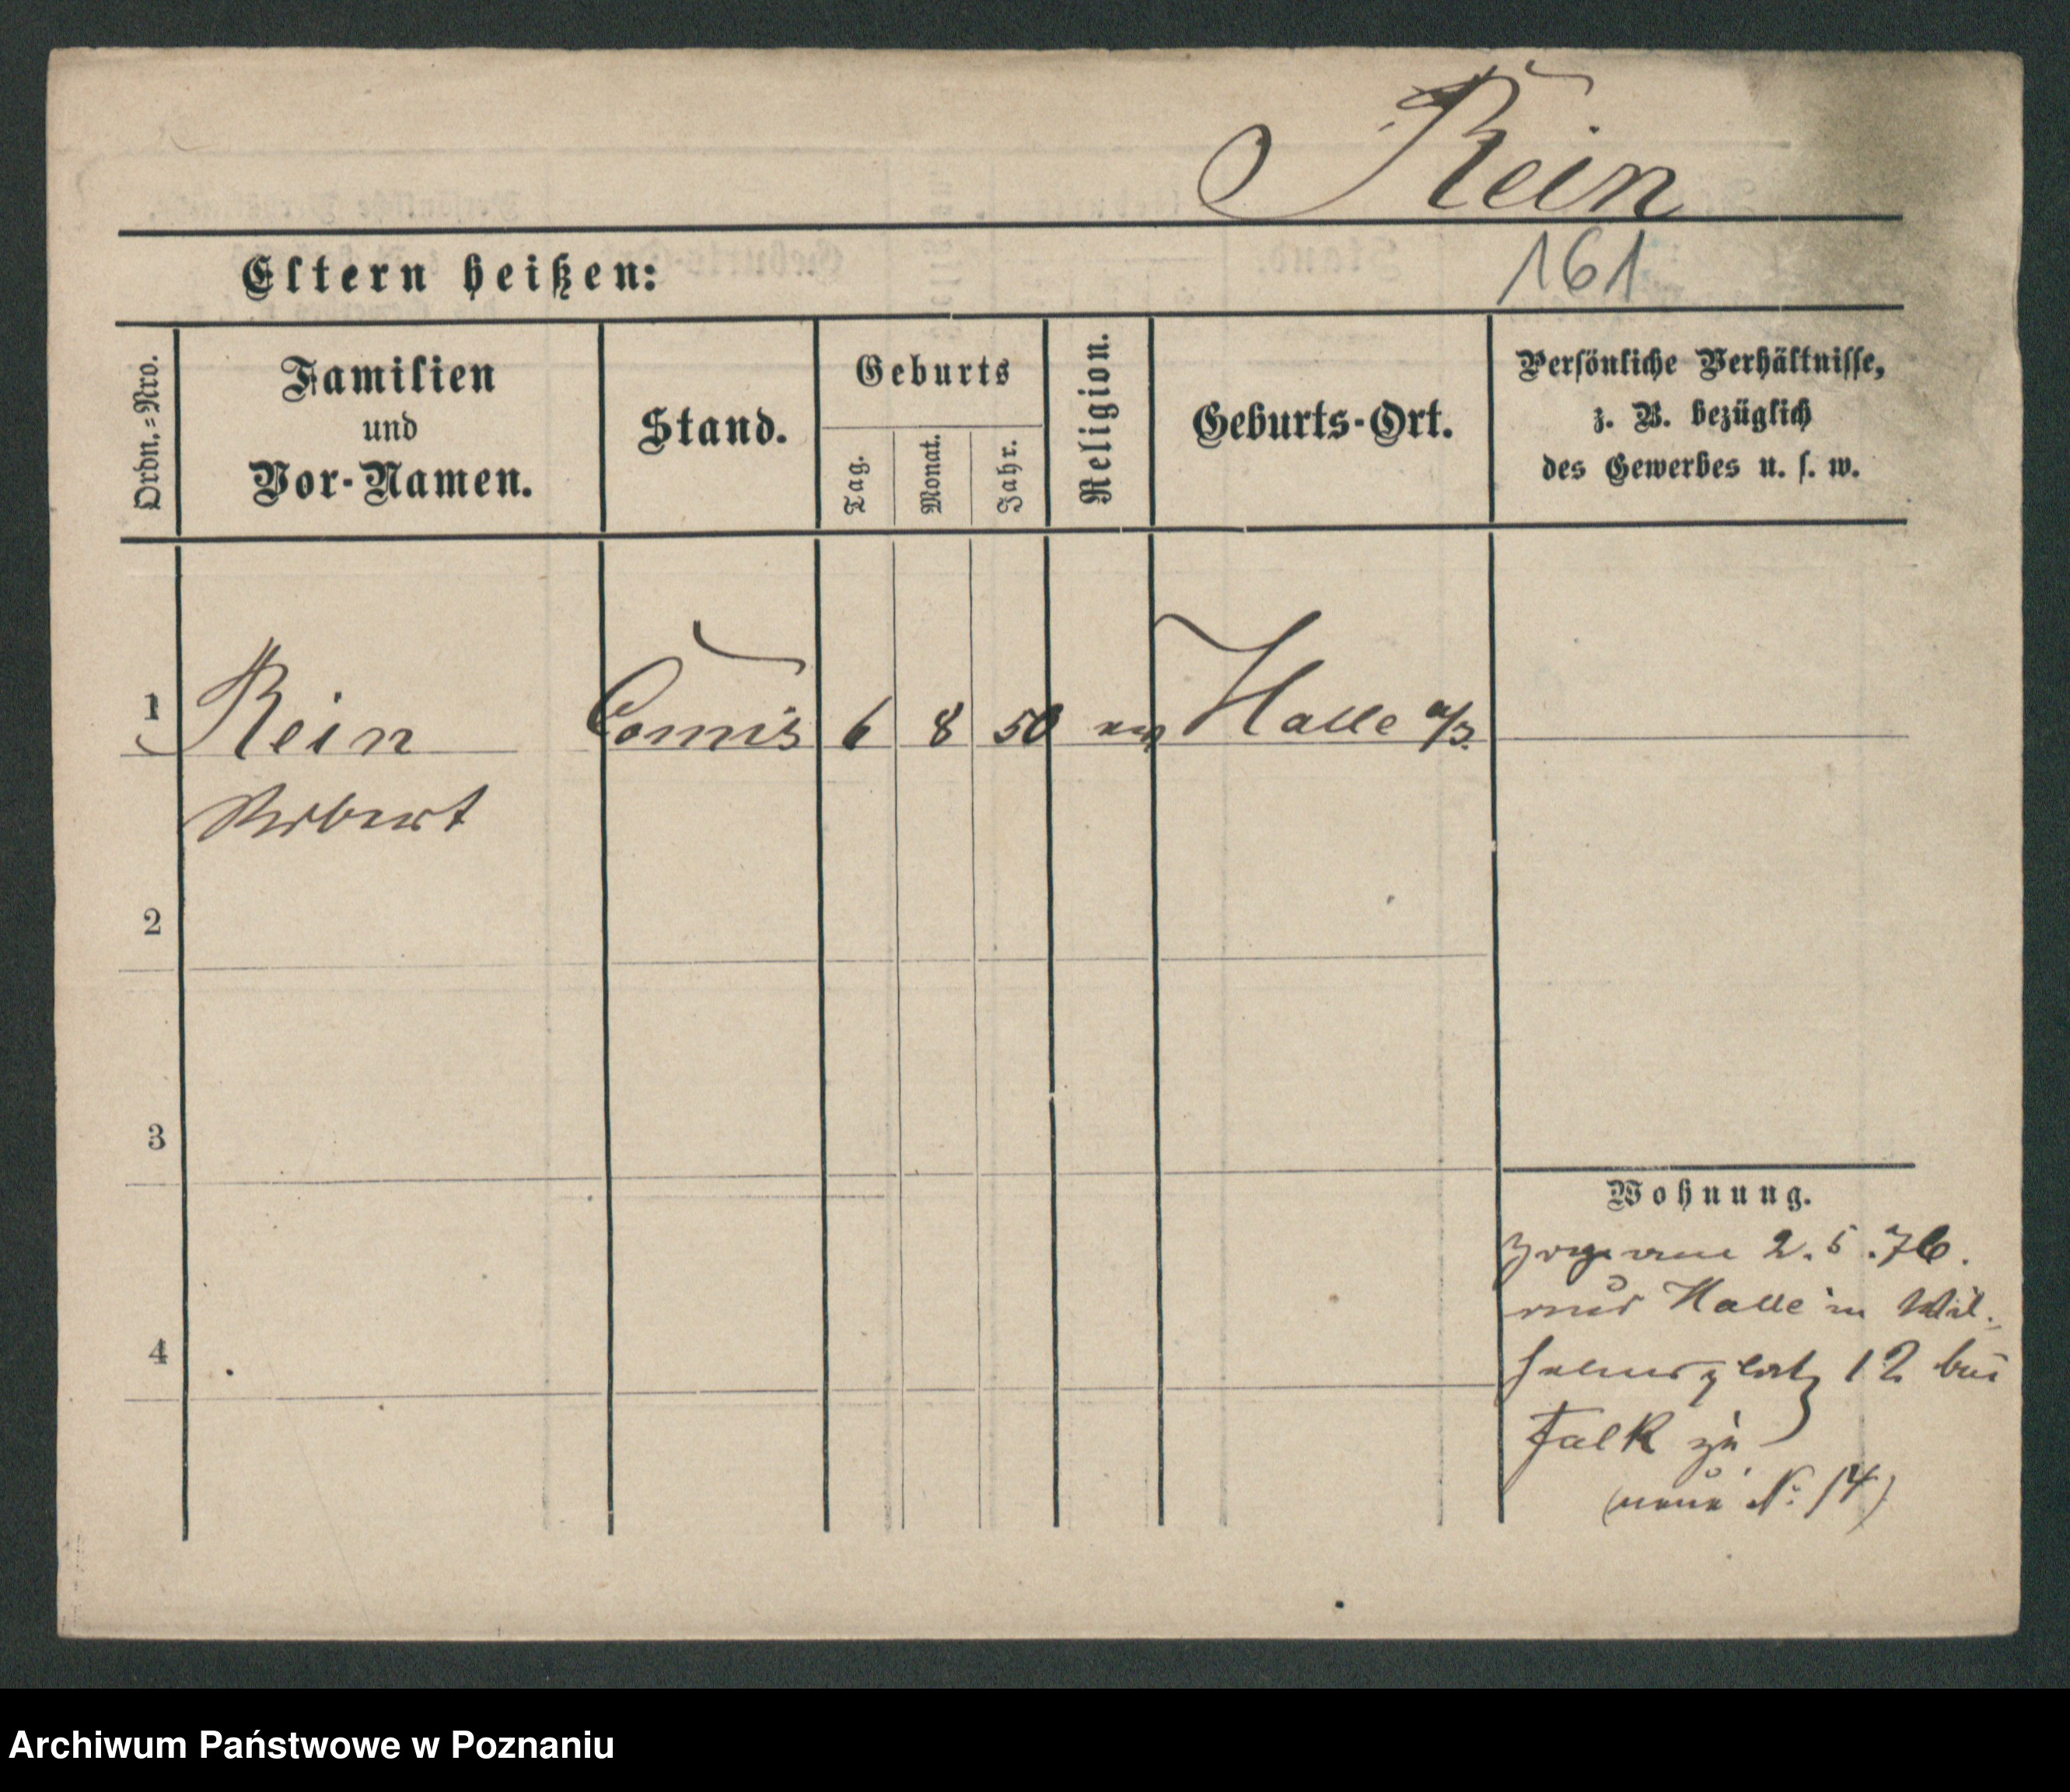 Rein
161
Eltern heißen:
Ordn.=Nro.
Familien
und
Vor-Namen.
Stand.
Geburts
Tag.
Monat.
Jahr.
Religion.
Geburts-Ort.
Persönliche Verhältnisse,
z. B. bezüglich
des Gewerbes u. s. w.
1 Rein Commis 6 8 50 ev Halle a/S.
Robert
2
3
4
Wohnung.
zog am 2.5.76.
aus Halle in Wil-
helmsplatz 12 bei
Falk zu
(neue N: 14)
Archiwum Państwowe w Poznaniu